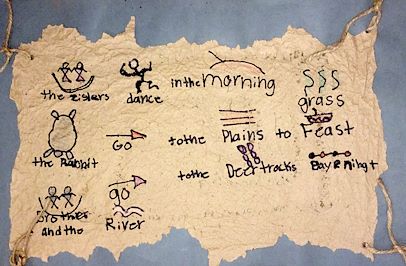 the zisters dance in the morning grass
the Rabbit Go to the Plains to Feast
Brothers go to the Deer tracks
and the River